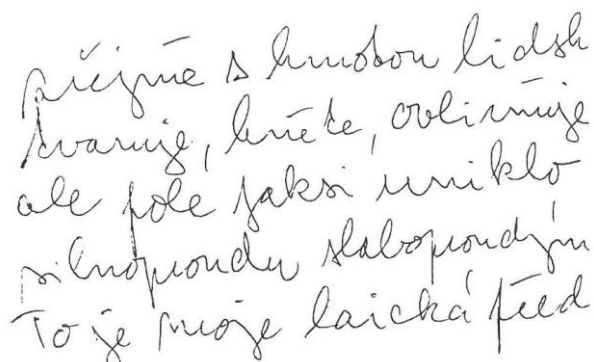 zřejmě s hmotou lidsk
tvaruje, hněte, ovlivňuje
ale pole jaksi uniklo
silnoproudu slaboproudým
To je moje laická před